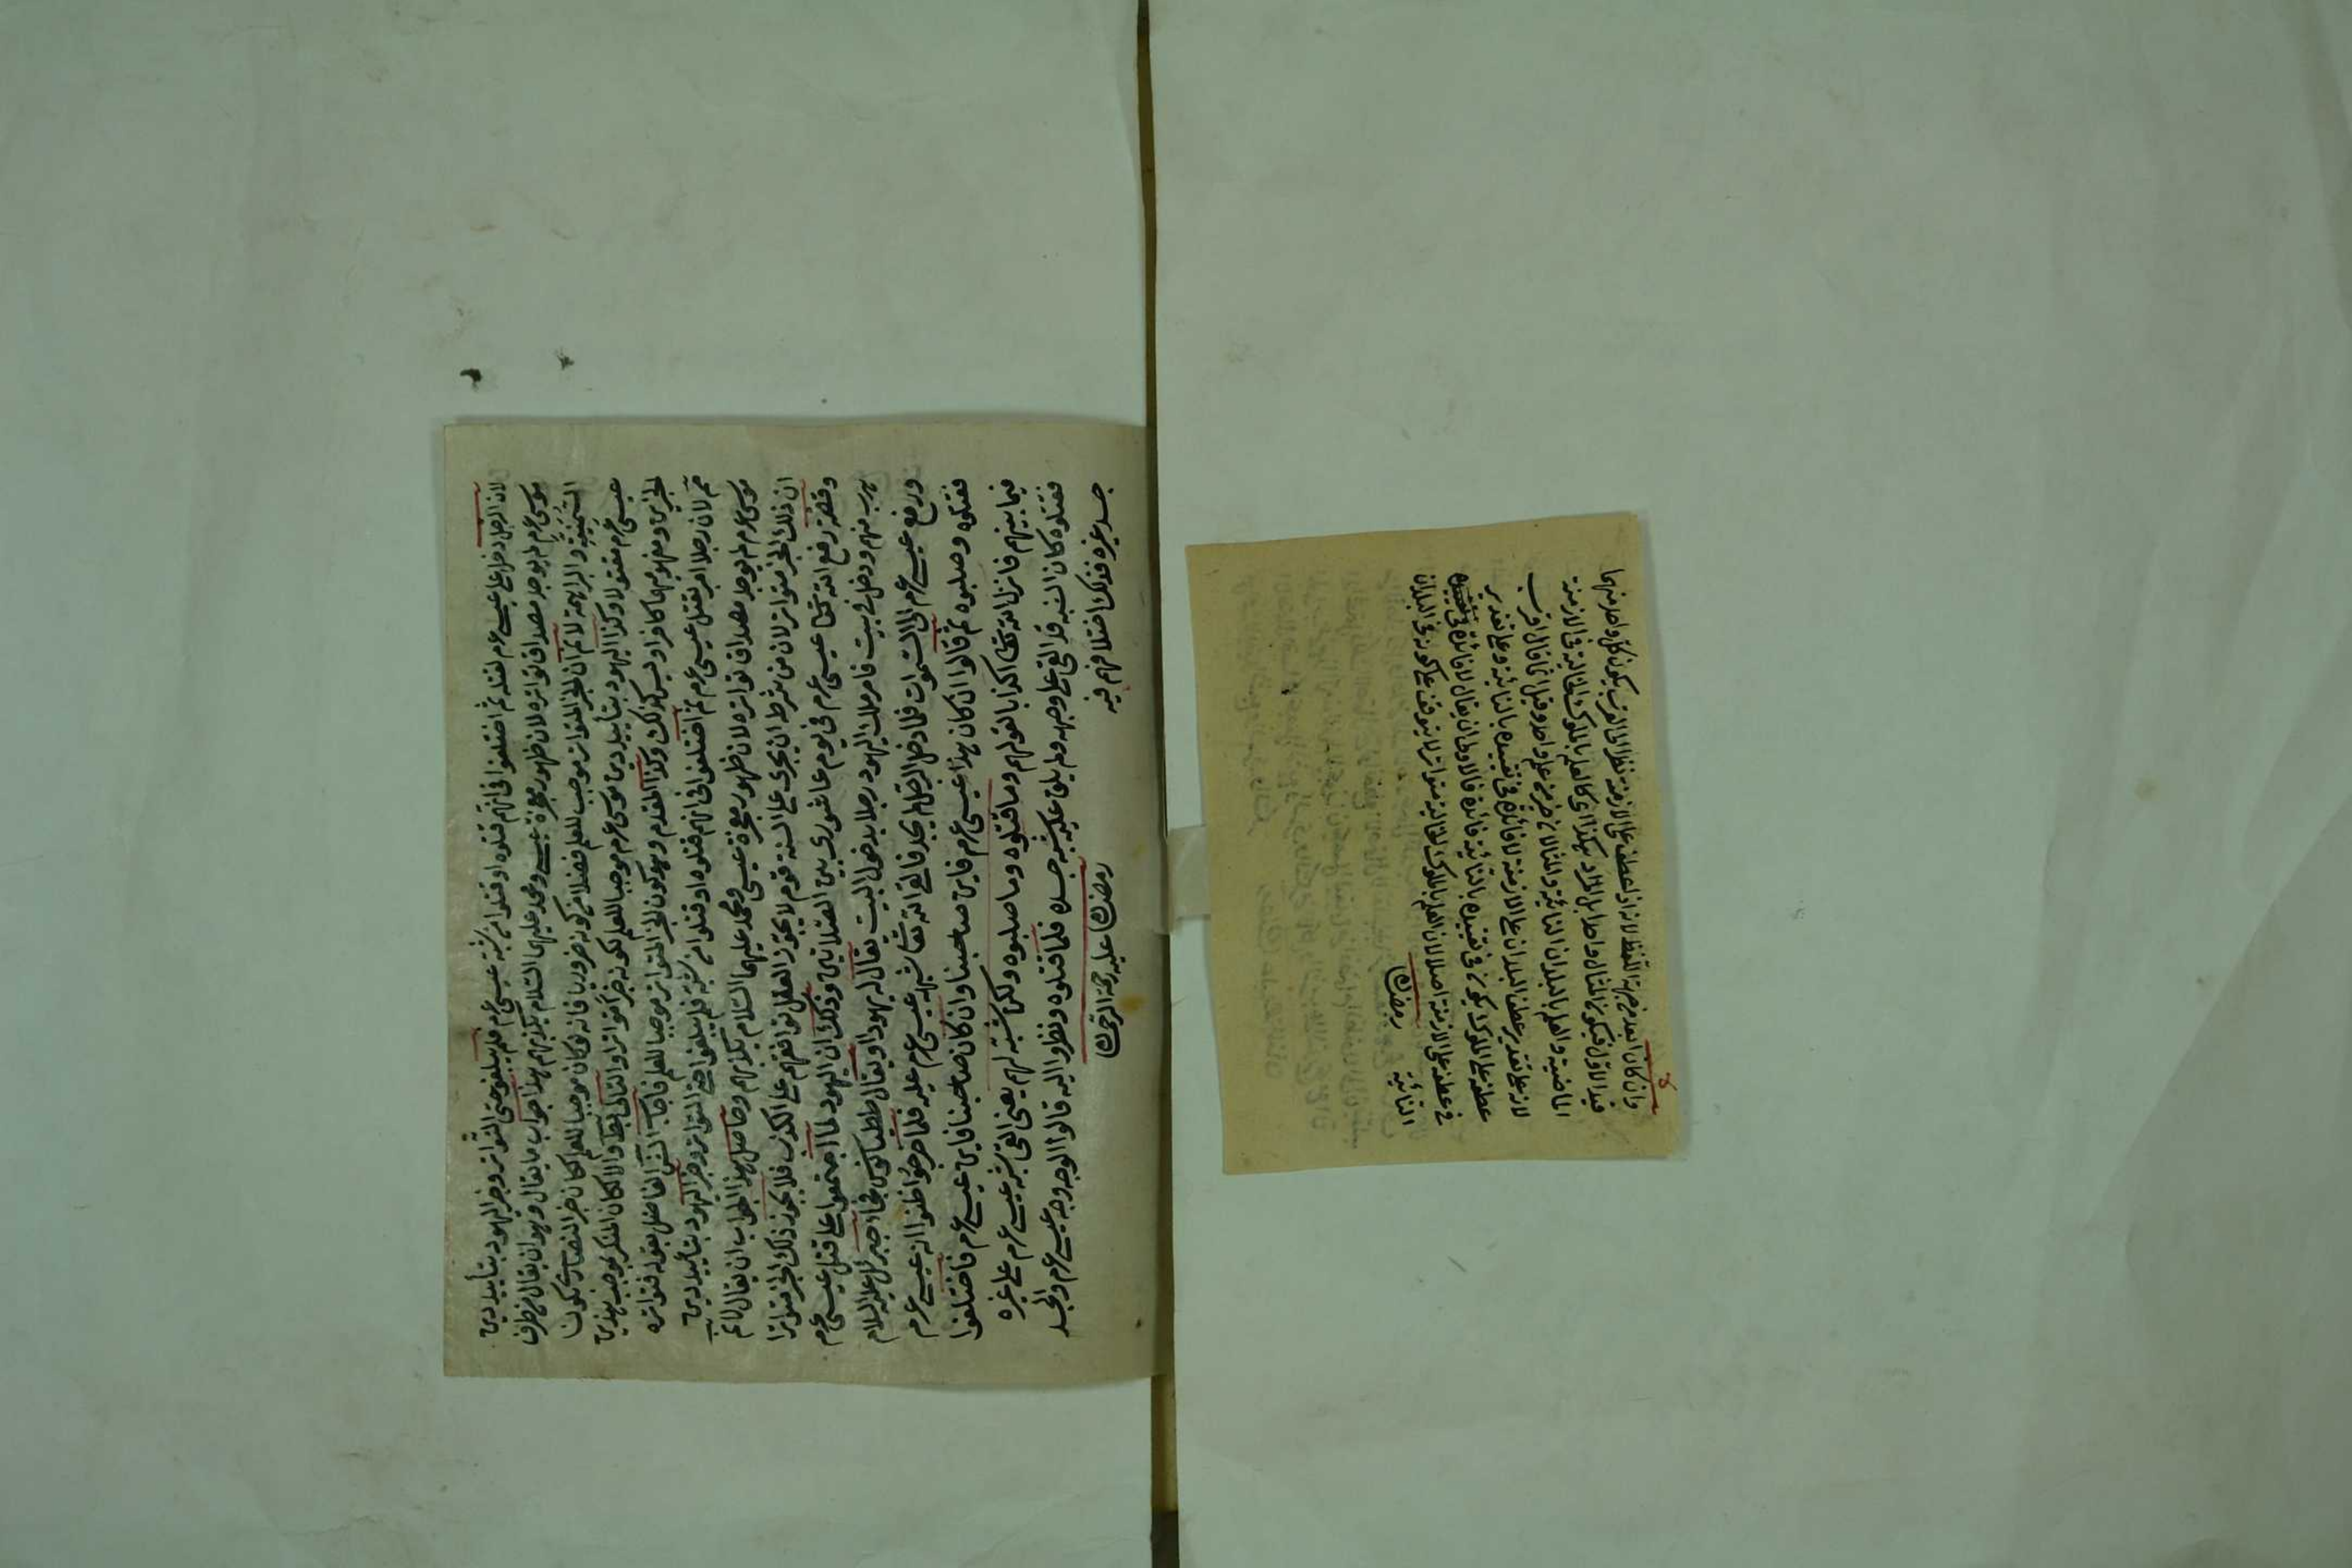 لان الرجل دخل على عيسى عم لقتله ثم اختلفوا فى انهم قتلوه او قتلوا من شبه عيسى عم فلم يبلغوا حتى التواتر وخبر اليهود بتأييد دين
موسى عم لم يوجد مصداق تواتره لان ظهور معجزة عيسى ومحمد عليهما السلام يكذبهم هذا جواب ما يقال وهو ان يقال من طرف
السمنية والبراهمة لانم ان الخبر المتواتر موجب للعلم فضلا من كونه ضروريا فانه لو كان موجبا للعلم لكان خبر النصارى بكون
عيسى عم مقتولا وكذا اليهود بتأييد دين موسى عم موجبا للعلم لكونه خبرا متواترا والتالى بط والا لكان المنكر بموجب هذين
الخبرين ومفهومهما كافرا وليس كذلك وكذا المقدم وهو كون الخبر المتواتر موجبا للعلم فاجاب الش الفاضل بقوله فتواتره
مم لان رجلا امر بقتل عيسى عم ثم اختلفوا فى انهم قتلوه او قتلوا من شبه فلم يبلغوا حتى التواتر وخبر اليهود بتأييد دين
موسى عم لم يوجد مصداق تواتره لان ظهور معجزة عيسى ومحمد عليهما السلام يكذبهم وحاصل هذا الجواب ان يقال لانم
ان ذلك الخبر متواتر لان من شرط ان يجرى على السنة قوم لا يجوز العقل توافقهم على الكذب فلا يجوز ذلك الخبر متواترا
وقصة رفع الله تعا عيسى عم فى يوم عاشورى بين الصلاتين وذلك ان اليهود لما اجتمعوا على قتل عيسى عم
هرب منهم ودخل فى بيت فامر ملك اليهود رجلا يدخل البيت يقال له يهودا ويقال ططيانوس فجاء جبرئيل عليه السلام
ورفع عيسى عم الى السموات فلما دخل الرجل لم يجد فالقى الله تعا شبه عيسى عم عليه فلما خرج ظنوا انه عيسى عم
فقتلوه وصلبوه ثم قالوا ان كان هذا عيسى عم فاين صاحبنا وان كان صاحبنا فاين عيسى عم فاختلفوا
فيما بينهم فانزل الله تعا اكذابا لقولهم وما قتلوه وما صلبوه ولكن شبه لهم يعنى القى شبه عيسى عم على غيره
فقتلوه كان الشبه قد القى على وجهه ولم يلق عليه شبه جسده فلما قتلوه ونظروا اليه قالوا الوجه وجه عيسى عم والجسد
جسد غيره فذلك اختلافهم فيه رمضان عليه رحمة الرحمن
وان كان ابعد من جهة اللفظ لانه اذا عطف على الازمنة نظرا الى القرب يكون كل واحد منهما
قيدا لاول فيكون المثال واحدا بل المراد هكذا اى كالعلم بالملوك الخالية فى الازمنة
الماضية والعلم بالبلدان النائية والمثالان خير من علم واحد وقيل انما قال اقرب
لانه على تقدير عطف البلدان على الازمنة لا فائدة فى تقييده بالنائية وعلى تقدير
عطفه على الملوك يكون فى تقييده بالنائية فائدة فالاولى ان يقال لا فائدة فى
فى عطفه على الازمنة اصلا لان العلم بالملوك الخالية متواتر لا يتوقف على كونه فى البلدان
النائية رمضان